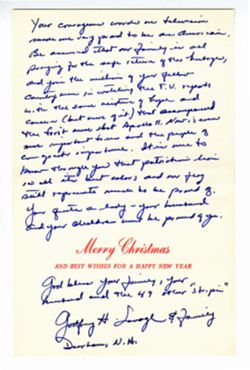 Your courageous words on television
made me very proud to be an American.
Be assured that our family is all
praying for the safe return of the hostages,
and join the millions of your fellow
countrymen in watching the T.V. reports
with the same mixture of hope and
concern (but more of it) that accompanied
the first news that Apollo 11. Now, is even
more important
It is nice to
know through you that patriotism lives
in all its best colors, and our flag
still represents much to be proud of.
You quite a lady - your husband
and your children must be proud of you.
Merry Christmas
AND BEST WISHES FOR A HAPPY NEW YEAR
God bless your family, your
husband and the 49 other
Godfrey H. Savage & Family
Durham, N.H.